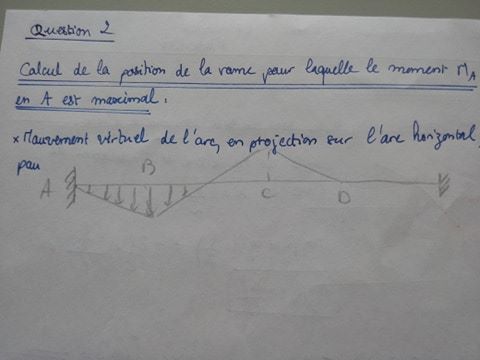 Question 2
Calcul de la position de la rame pour laquelle le moment MA
en A est maximal.
* Mouvement virtuel de l'arc, en projection sur l'arc horizontal,
pau
A
B
C
D